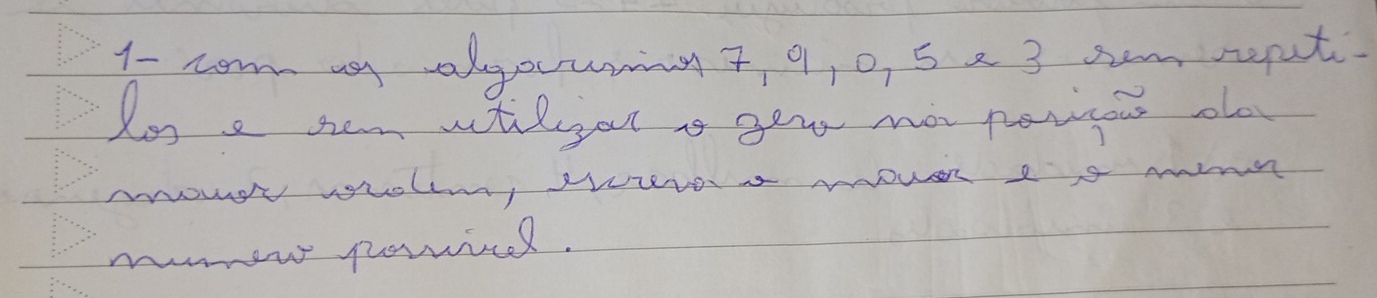 1- com os algarismos 7, 9, 0, 5 e 3 sem repeti-
los e sem utilizar o zero na posição da
maior ordem, escreva o maior e o menor
numero possivel.